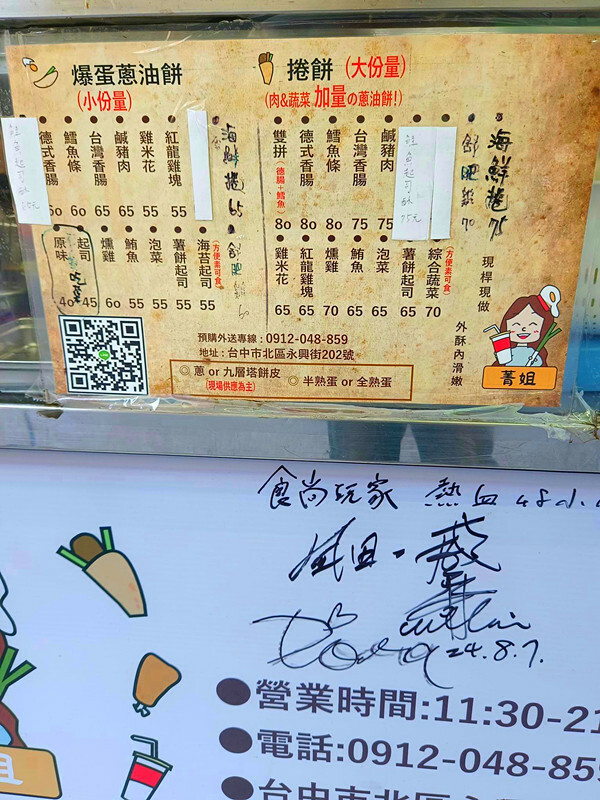 爆蛋蔥油餅
(小份量)
捲餅 (大份量)
(肉&蔬菜 加量の蔥油餅!)
德式香腸 60
鱈魚條 60
台灣香腸 65
鹹豬肉 65
雞米花 55
紅龍雞塊 55
海鮮捲 65
原味 40
起司 45
燻雞 60
鮪魚 55
泡菜 55
薯餅起司 55
海苔起司 55
(方便素可食)
舒肥雞 60
雙拼(德腸+鱈魚) 80
德式香腸 80
鱈魚條 80
台灣香腸 75
鹹豬肉 75
舒肥雞 70
海鮮捲 75
雞米花 65
紅龍雞塊 65
燻雞 70
鮪魚 65
泡菜 65
薯餅起司 65
綜合蔬菜 70
(方便素可食)
現桿現做
外酥內滑嫩
菁姐
預購外送專線:0912-048-859
地址:台中市北區永興街202號
◎ 蔥 or 九層塔餅皮
(現場供應為主)
◎ 半熟蛋 or 全熟蛋
食尚玩家 熱血48小
24.8.7.
●營業時間:11:30-21
●電話:0912-048-859
●台中市北區永
姐